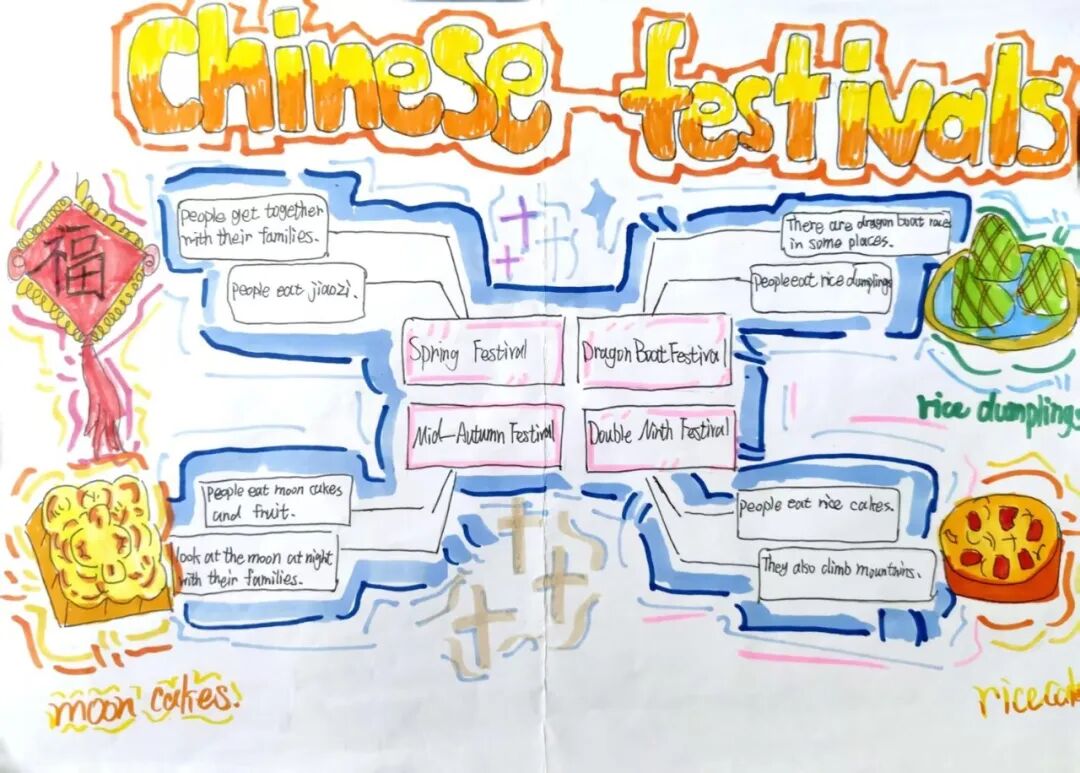 Chinese festivals
福
People get together
with their families.
People eat jiaozi.
There are dragon boat races
in some places.
People eat rice dumplings
Spring Festival
Dragon Boat Festival
rice dumplings
Mid-Autumn Festival
Double Ninth Festival
People eat moon cakes
and fruit.
look at the moon at night
with their families.
People eat rice cakes.
They also climb mountains.
moon cakes.
rice